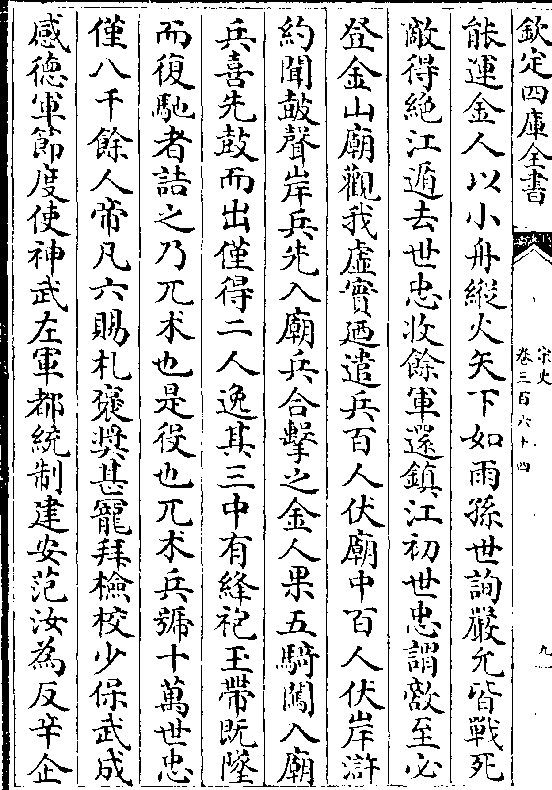 欽定四庫全書
宋史
卷三百六十四
九
能運金人以小舟縱火矢下如雨孫世詢嚴允皆戰死
敵得絶江遁去世忠收餘軍還鎮江初世忠謂敵至必
登金山廟觀我虛實廼遣兵百人伏廟中百人伏岸滸
約聞鼓聲岸兵先入廟兵合擊之金人果五騎闖入廟
兵喜先鼓而出僅得二人逸其三中有絳袍玉帶既墜
而復馳者詰之乃兀术也是役也兀术兵號十萬世忠
僅八千餘人帝凡六賜札褒奬甚寵拜檢校少保武成
感德軍節度使神武左軍都統制建安范汝為反辛企